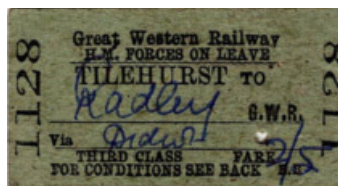 1128
Great Western Railway
H.M. FORCES ON LEAVE
TILEHURST TO
Radley
G.W.R.
Via Didcot
THIRD CLASS FARE 2/5
FOR CONDITIONS SEE BACK
1128